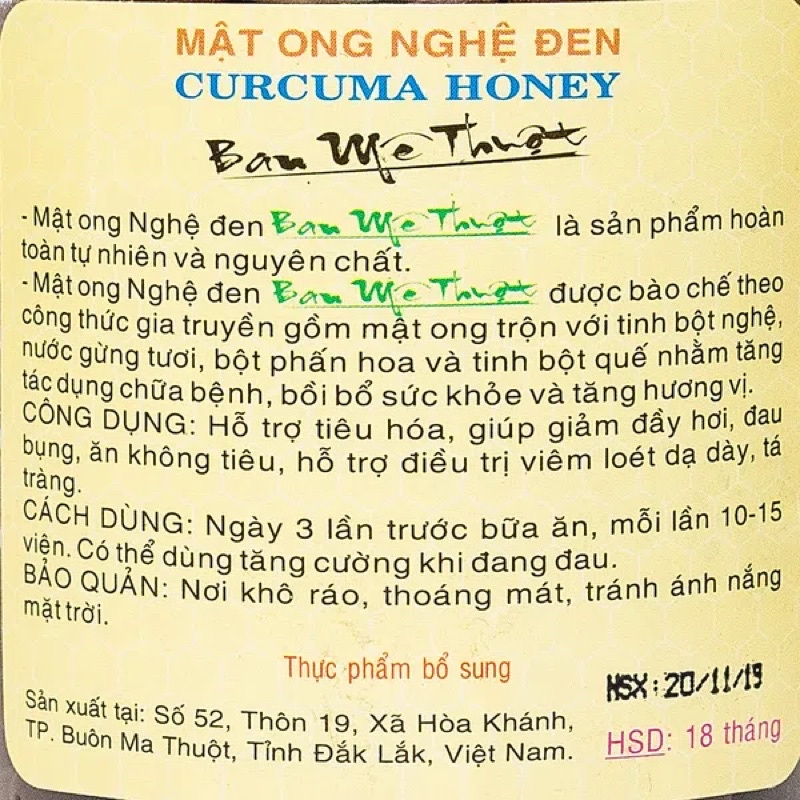 MẬT ONG NGHỆ ĐEN
CURCUMA HONEY
Ban Mê Thuột
- Mật ong Nghệ đen Ban Mê Thuột là sản phẩm hoàn
toàn tự nhiên và nguyên chất.
- Mật ong Nghệ đen Ban Mê Thuột được bào chế theo
công thức gia truyền gồm mật ong trộn với tinh bột nghệ,
nước gừng tươi, bột phấn hoa và tinh bột quế nhằm tăng
tác dụng chữa bệnh, bồi bổ sức khỏe và tăng hương vị.
CÔNG DỤNG: Hỗ trợ tiêu hóa, giúp giảm đầy hơi, đau
bụng, ăn không tiêu, hỗ trợ điều trị viêm loét dạ dày, tá
tràng.
CÁCH DÙNG: Ngày 3 lần trước bữa ăn, mỗi lần 10-15
viện. Có thể dùng tăng cường khi đang đau.
BẢO QUẢN: Nơi khô ráo, thoáng mát, tránh ánh nắng
mặt trời.
Thực phẩm bổ sung
HSX: 20/11/19
Sản xuất tại: Số 52, Thôn 19, Xã Hòa Khánh,
TP. Buôn Ma Thuột, Tỉnh Đắk Lắk, Việt Nam.
HSD: 18 tháng